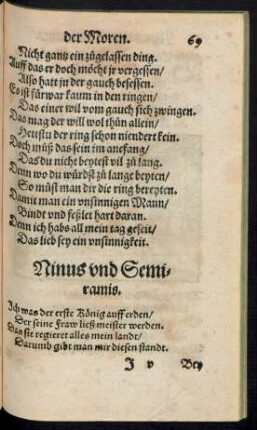 der Moren. 69
Nicht gantz ein zůgelassen ding.
Auff das er doch möcht jr vergessen/
Also hatt in der gauch besessen.
Es ist fürwar kaum in den ringen/
Das einer wil vom gauch sich zwingen.
Das mag der will wol thůn allein/
Hettstu der ring schon niendert kein.
Doch můß das sein im anefang/
Das du nicht beytest vil zů lang.
Denn wo du würdst zů lange beyten/
So můst man dir die ring bereyten.
Damit man ein vnsinnigen Mann/
Bindt vnd feßlet hart daran.
Denn ich habs all mein tag geseit/
Das lieb sey ein vnsinnigkeit.
Ninus vnd Semi-
ramis.
Ich was der erste König auff erden/
Der seine Fraw ließ meister werden.
Das sie regieret alles mein landt/
Darumb gibt man mir diesen standt.
J v Bey